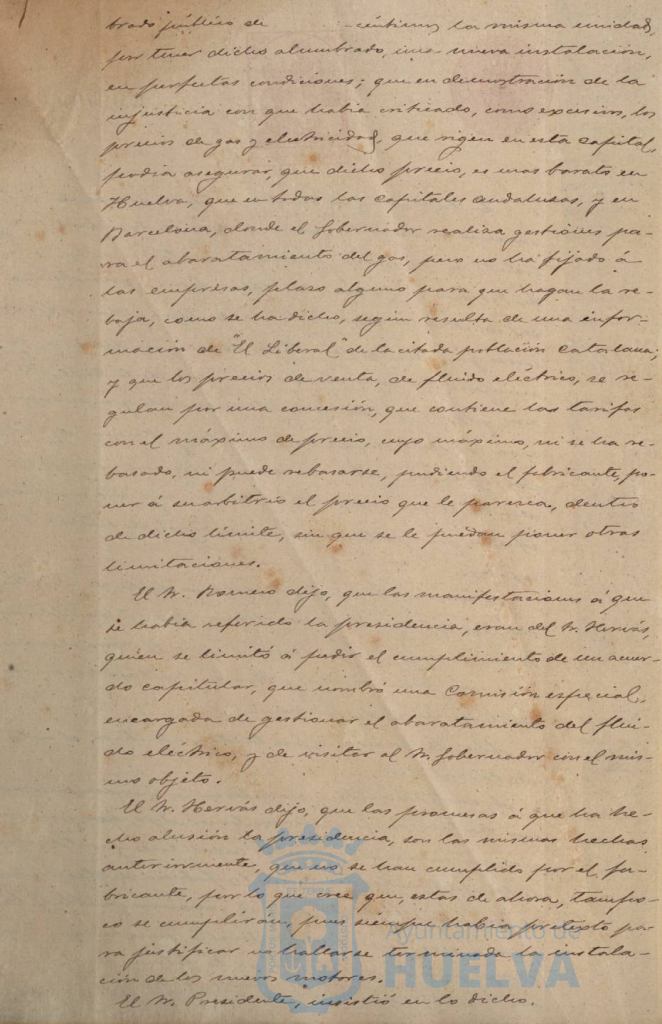 brado público de céntimos la misma unidad,
por tener dicho alumbrado, una nueva instalación,
en perfectas condiciones; que en demostración de la
injusticia con que había criticado, como excesivos, los
precios de gas y electricidad, que rigen en esta capital,
podía asegurar, que dicho precio, es mas barato en
Huelva, que en todas las capitales andaluzas, y en
Barcelona, donde el Gobernador realiza gestiones pa-
ra el abaratamiento del gas, pero no ha fijado á
las empresas, plazo alguno para que hagan la re-
baja, como se ha dicho, según resulta de una infor-
mación de "El Liberal" de la citada población catalana;
y que los precios de venta, de fluido eléctrico, se re-
gulan por una concesión, que contiene las tarifas
con el máximo de precio, cuyo máximo, ni se ha re-
basado, ni puede rebasarse, pudiendo el fabricante, po-
ner á su arbitrio el precio que le parezca, dentro
de dicho límite, sin que se le puedan poner otras
limitaciones.
El Sr. Romero dijo, que las manifestaciones á que
se había referido la presidencia, eran del Sr. Hervás,
quien se limitó á pedir el cumplimiento de un acuer-
do capitular, que nombró una Comisión especial,
encargada de gestionar el abaratamiento del flui-
do eléctrico, y de visitar al Sr. Gobernador con el mis-
mo objeto.
El Sr. Hervás dijo, que las promesas á que ha he-
cho alusión la presidencia, son las mismas hechas
anteriormente, que no se han cumplido por el fa-
bricante, por lo que cree que, estas de ahora, tampo-
co se cumplirán, pues siempre habrá pretexto pa-
ra justificar no hallarse terminada la instala-
ción de los nuevos motores.
El Sr. Presidente, insistió en lo dicho.
Ayuntamiento de
HUELVA